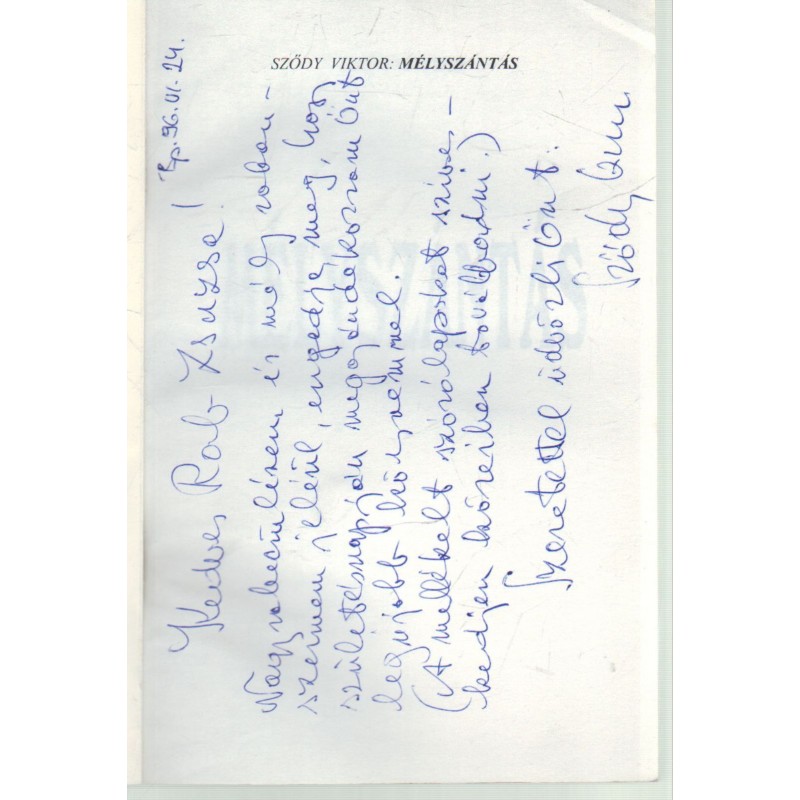 SZŐDY VIKTOR: MÉLYSZÁNTÁS
Bp. 96. VI. 24.
Kedves Rab Zsuzsa!
Nagyrabecsülésem és mély rokon-
szenvem jeléül, engedje meg, hogy
születésnapján megajándékozzam Önt
legújabb könyvemmel.
(A mellékelt szórólapokat szíves-
kedjen köreiben továbbadni.)
Szeretettel üdvözli Önt:
Sződy
MÉLYSZÁNTÁS